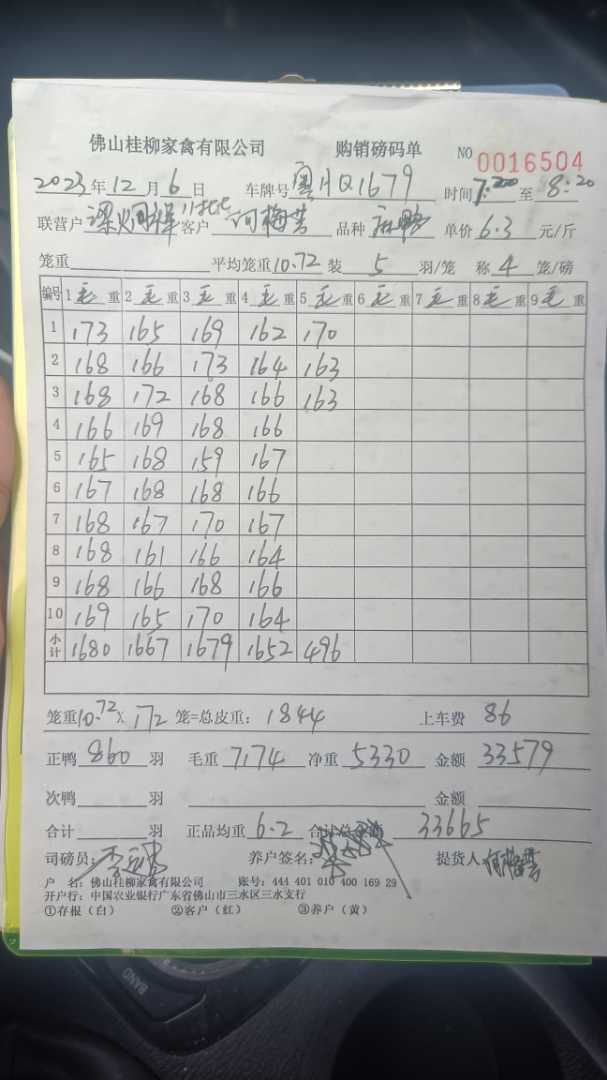 佛山桂柳家禽有限公司 购销磅码单 NO 0016504
2023年12月6日 车牌号 粤AQ1679 时间 7: 至 8:20
联营户 客户 何梅芳 品种 麻鸭 单价 6.3 元/斤
笼重 平均笼重10.72 装 5 羽/笼 称 4 笼/磅
编号 1毛重 2毛重 3毛重 4毛重 5毛重 6毛重 7毛重 8毛重 9毛重
1 173 165 169 162 170
2 168 166 173 164 163
3 168 172 168 166 163
4 166 169 168 166
5 165 168 159 167
6 167 168 168 166
7 168 167 170 167
8 168 161 166 164
9 168 166 168 166
10 169 165 170 164
小计 1680 1667 1679 1652 496
笼重10.72×172 笼=总皮重:1844 上车费 86
正鸭 860 羽 毛重 7174 净重 5330 金额 33579
次鸭 羽 金额
合计 羽 正品均重 6.2 合计总金额 33665
司磅员: 养户签名: 提货人
户 名:佛山桂柳家禽有限公司 账号:444 401 010 400 169 29
开户行:中国农业银行广东省佛山市三水区三水支行
①存根(白) ②客户(红) ③养户(黄)
BAND